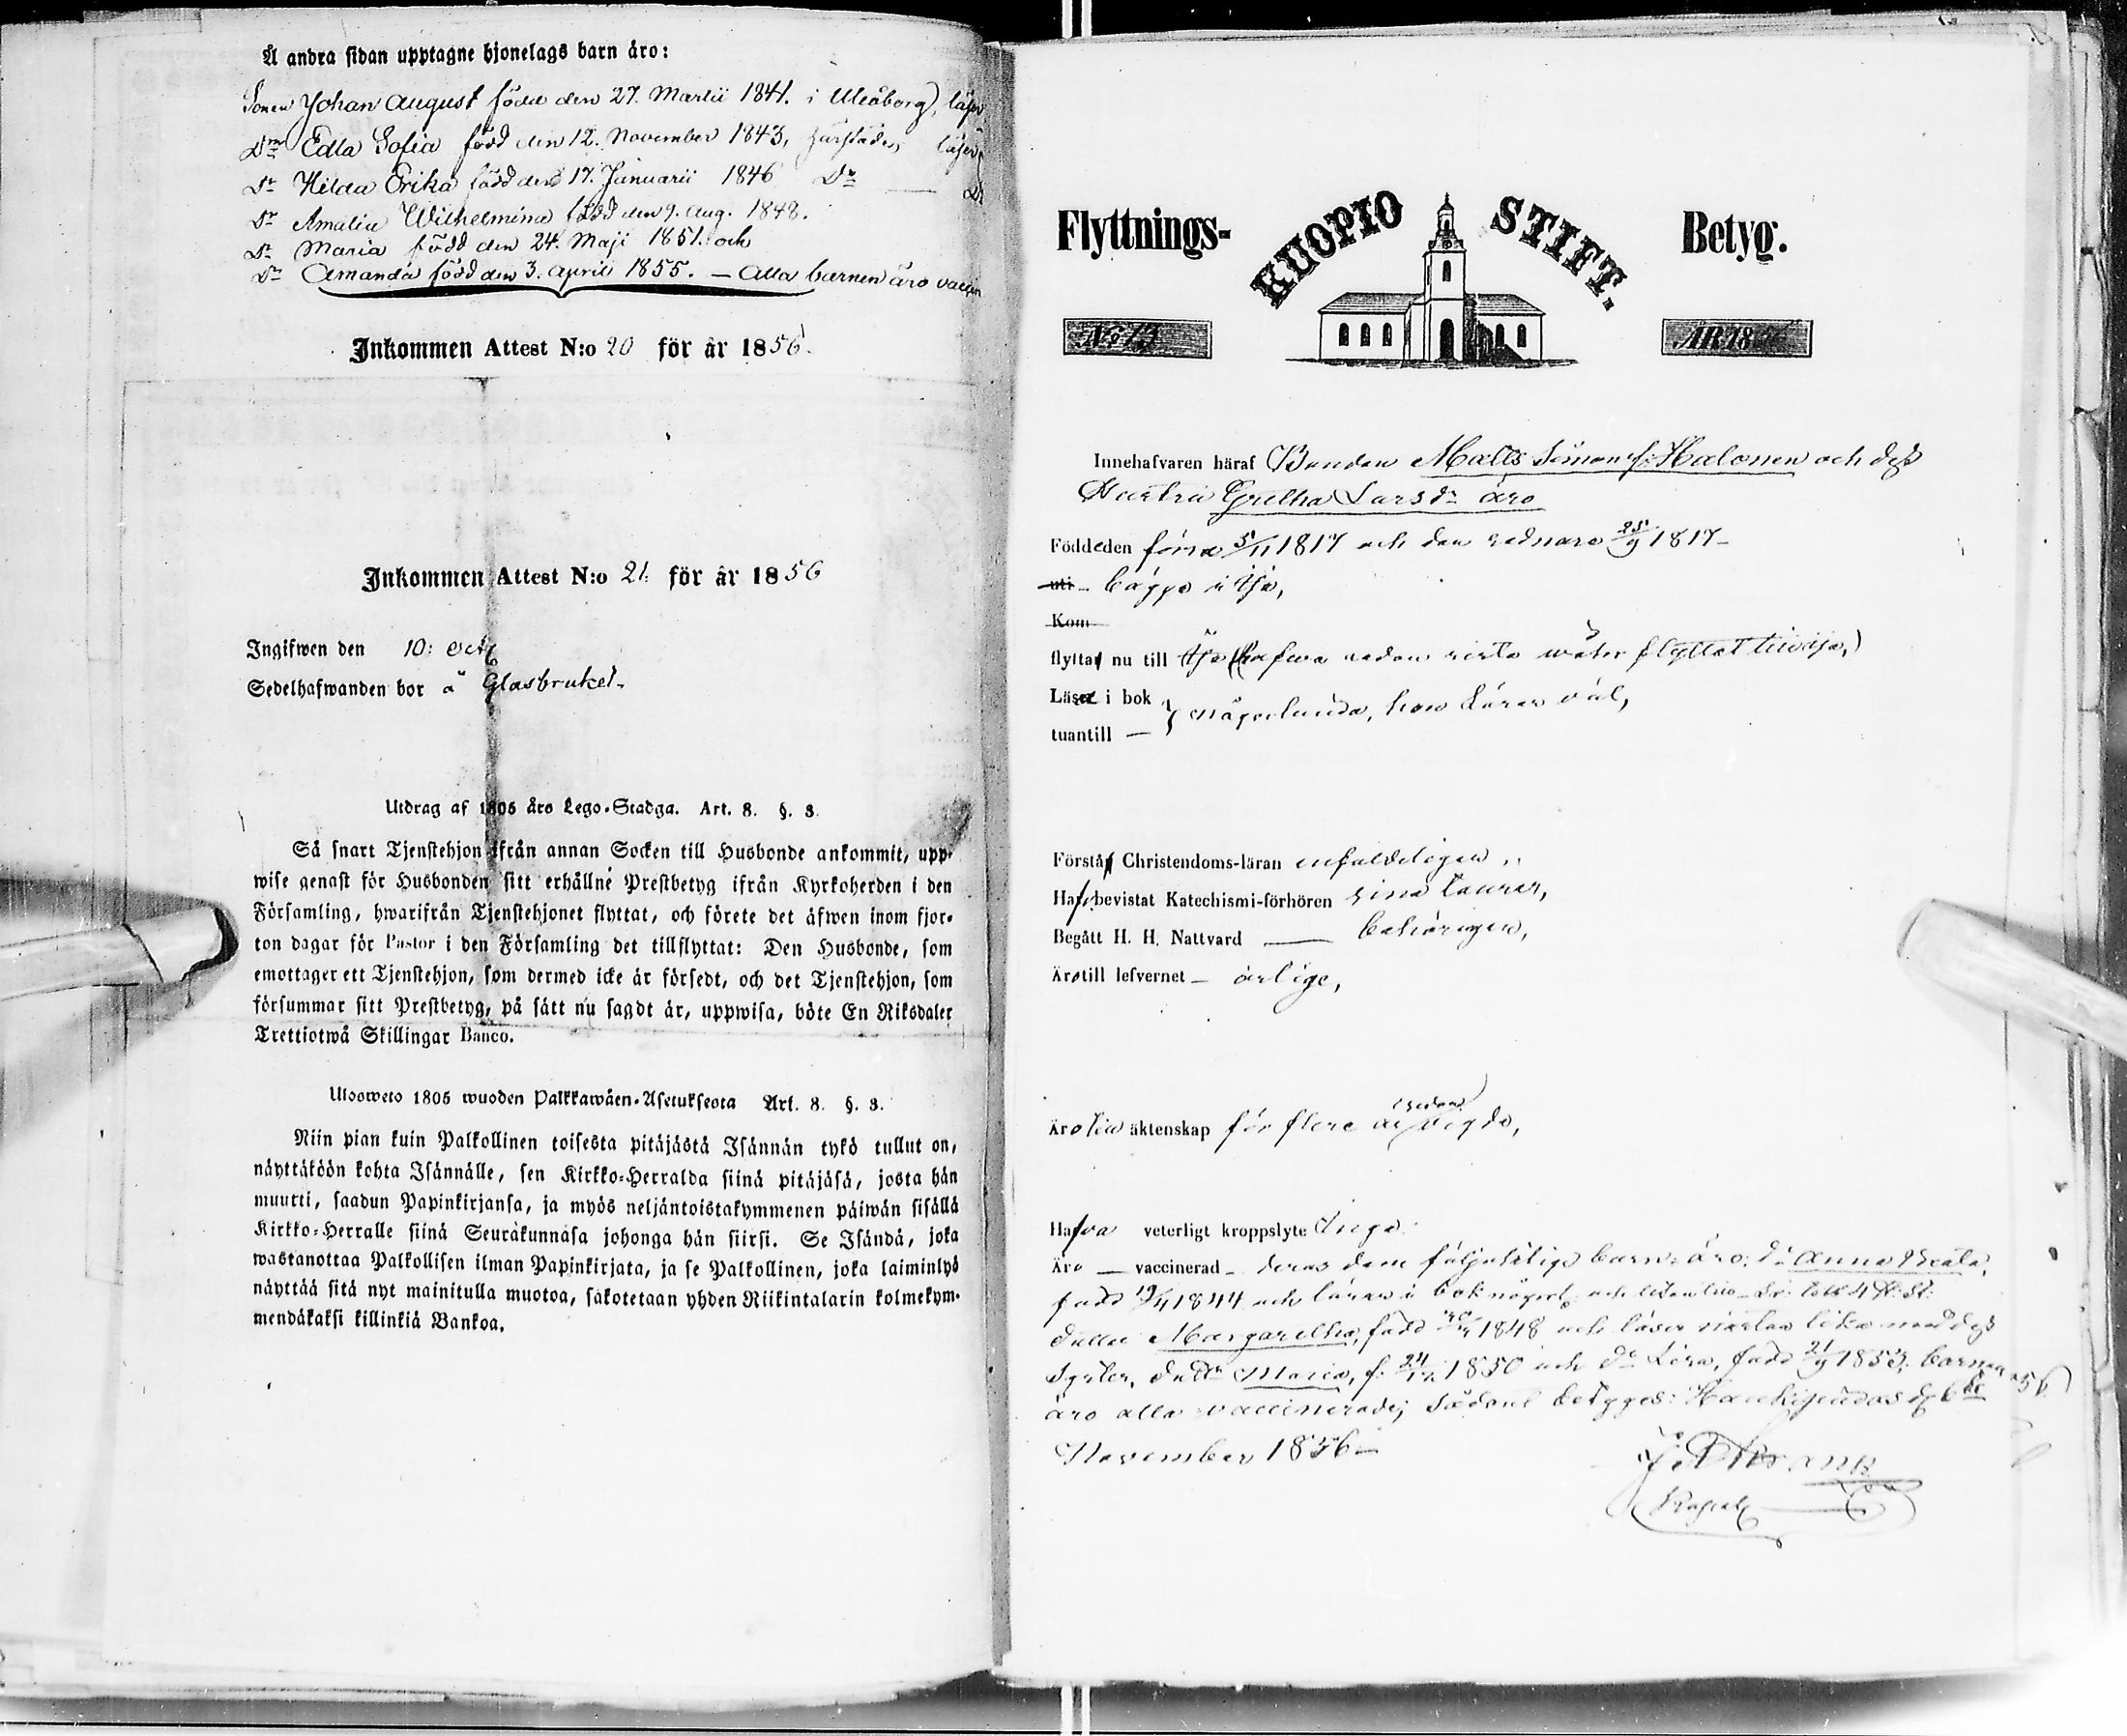 Å andra sidan upptagne hjonelags barn äro:
Sonen Johan August född den 27. Martii 1841. i Uleåborg), läser
Dm Edla Sofia född den 12. November 1843, härstädes, läser
Dr Hilda Erika född den 17. Januarii 1846 Dr — Dr
Dr Amalia Wilhelmina född den 9. Aug. 1848.
Dr Maria född den 24. Maji 1851. och
Dr Amanda född den 3. April 1855. — Alla barnen äro vaccin
Inkommen Attest N:o 20 för år 1856.
Inkommen Attest N:o 21. för år 1856
Ingifwen den 10: Oct
Sedelhafwanden bor å Glasbruket.
Utdrag af 1805 års Lego-Stadga. Art. 8. §. 3.
Så snart Tjenstehjon ifrån annan Socken till Husbonde ankommit, upp-
wise genast för Husbonden sitt erhållne Prestbetyg ifrån Kyrkoherden i den
Församling, hwarifrån Tjenstehjonet flyttat, och förete det äfwen inom fjor-
ton dagar för Pastor i den Församling det tillflyttat: Den Husbonde, som
emottager ett Tjenstehjon, som dermed icke är försedt, och det Tjenstehjon, som
försummar sitt Prestbetyg, på sätt nu sagdt är, uppwisa, böte En Riksdaler
Trettiotwå Skillingar Banco.
Ulosweto 1805 wuoden Palkkawäen-Asetuksesta Art. 8. §. 3.
Niin pian kuin Palkollinen toisesta pitäjästä Isännän tykö tullut on,
näyttäköön kohta Isännälle, sen Kirkko-Herralda siinä pitäjäsä, josta hän
muutti, saadun Papinkirjansa, ja myös neljäntoistakymmenen päiwän sisällä
Kirkko-Herralle siinä Seurakunnasa johonga hän siirsi. Se Isändä, joka
wastanottaa Palkollisen ilman Papinkirjata, ja se Palkollinen, joka laiminlyö
näyttää sitä nyt mainitulla muotoa, sakotetaan yhden Riikintalarin kolmekym-
mendäkaksi killinkiä Bankoa.
Flyttnings- KUOPIO STIFT. Betyg.
No 13 ÅR 1856
Innehafvaren häraf Bonden Matts Simonss: Halonen och dess
Hustru Gretha Larsdr äro
Föddeden förra 5/11 1817 och den sednare 25/9 1817 -
uti - bägge i
Kom
flyttat nu till (hafwa redan sista flyttat
Läsa i bok
tuantill — } någorlunda, hon Läser väl,
Förstå Christendoms-läran enfaldeligen,,
Haf bevistat Katechismi-förhören sina
Begått H. H. Nattvard — behörigen,
Äro till lefvernet - ärlige,
Äro äktenskap för flere år sedan vigde,
Hafva veterligt kroppslyte Inga.
Äro — vaccinerad - deras dem följaktlige barn äro: dr Anna Beata,
född 19/4 1844 och läser i bok
Margaretha, född 1848 och läser nästan lika med dess
Syster, Maria, f. 1850 och dr Lisa, född 21/9 1853; barnen
äro alla vaccinerade; Sådant betygges: d. 6te
November 1856 -